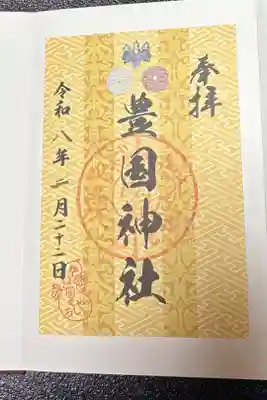 奉拝
豊国神社
令和八年二月二十二日